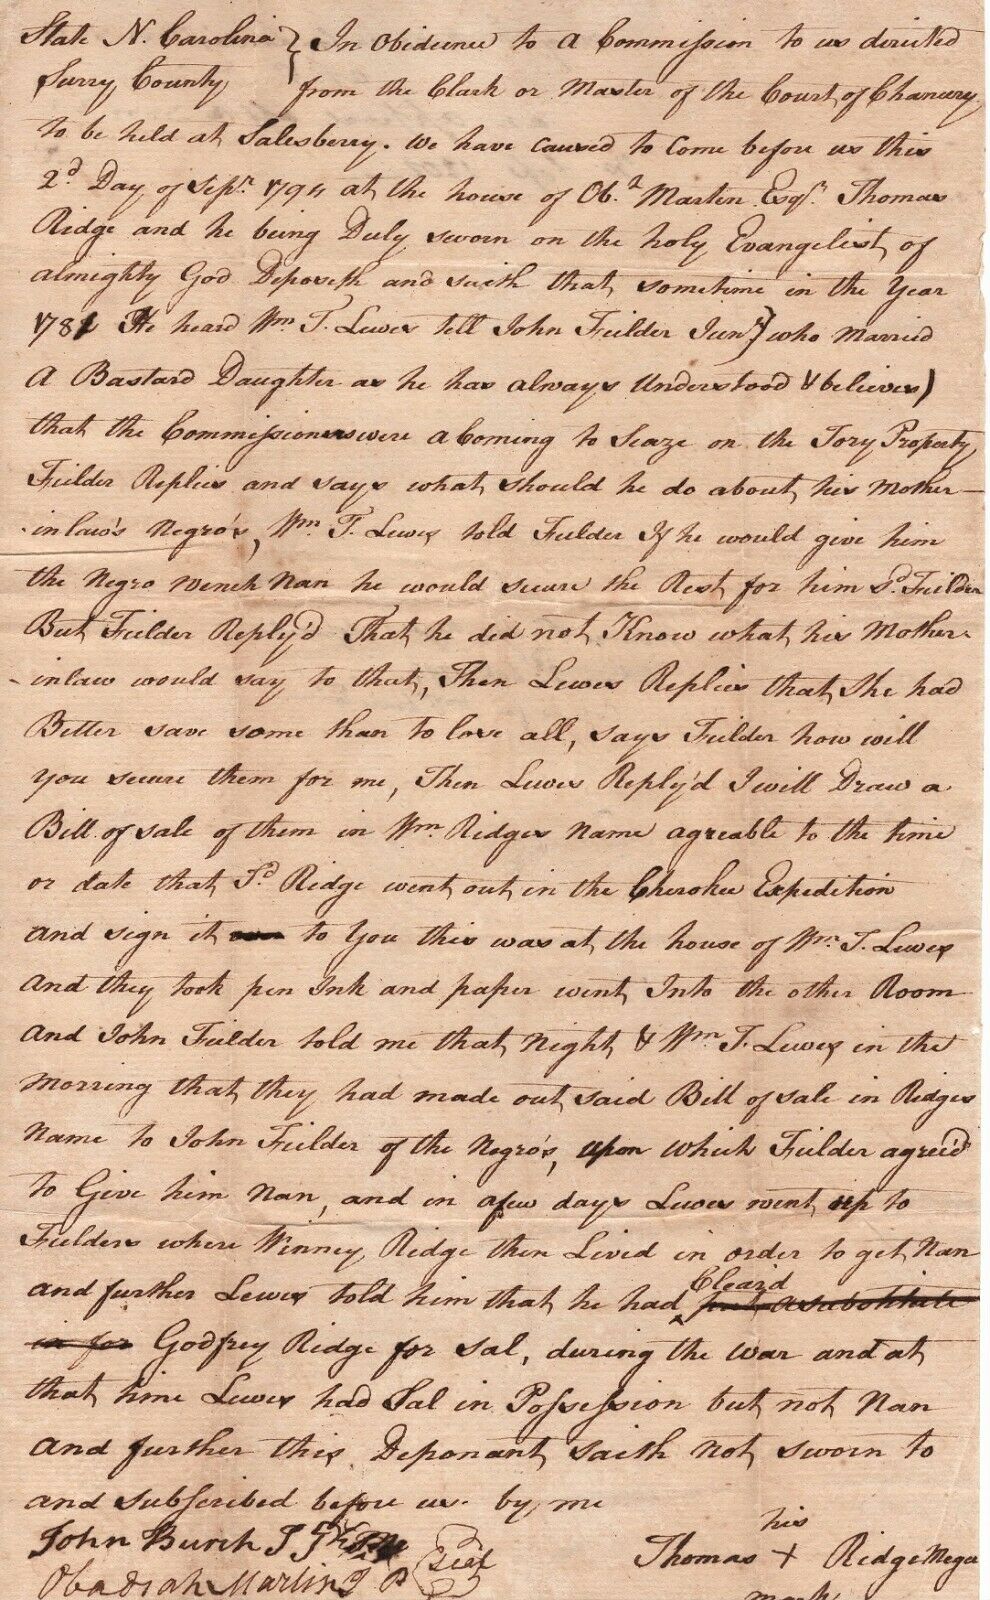 State N. Carolina } In Obidience to A Commission to us directed
Surry County from the Clark or Master of the Court, of Chancery
to be held at Salesberry. we have caused to Come before us this
2d Day of Sepr. 1794 at the house of Obh. Marten Esqr. Thomas
Ridge and he being Duly sworn on the holy Evangelist, of
almighty God Deposeth and saith that, sometime in the Year
1781 He heard Wm T. Lewes tell John Fielder Junr} who Married
A Bastard Daughter as he has always Understood & believes)
that the Commissioners were a Coming to Seaze on the Tory Property,
Fielder Replies and says what, should he do about, his Mother-
-inlaw's Negro's, Wm. T. Lewes told Fielder If he would give him
the Negro Wench Nan he would secure the Rest, for him sd. Fielder
But Fielder Reply'd That he did not Know what his Mother-
-inlaw would say to that, Then Lewes Replies that, She had
Better save some than to lose all, says Fielder how will
you secure them for me, Then Lewes Reply'd I will Draw a
Bill of sale of them in Wm. Ridges Name agreable to the time
or date that Sd. Ridge went out in the Cherokee Expedition
and sign it to You this was at the house of Wm. T. Lewes
And they took pen Ink and paper went, Into the other Room
And John Fielder told me that, Night, & Wm T. Lewes in the
Morring that, they had made out, said Bill of sale in Ridges
Name to John Fielder of the Negro's, upon which Fielder agree'd
to Give him Nan, and in a few days Lewes went up to
Fielders where Winney Ridge then Lived in order to get, Nan
Clear'd
and further Lewes told him that he had put a substitute
in for Godfrey Ridge for Sal, during the war and at
that time Lewes had Sal in Possession but not Nan
And further this Deponant, saith Not sworn to
and subscribed before us by me
John Burch J
Obadiah Martin J P
his
Thomas + Ridge
mark